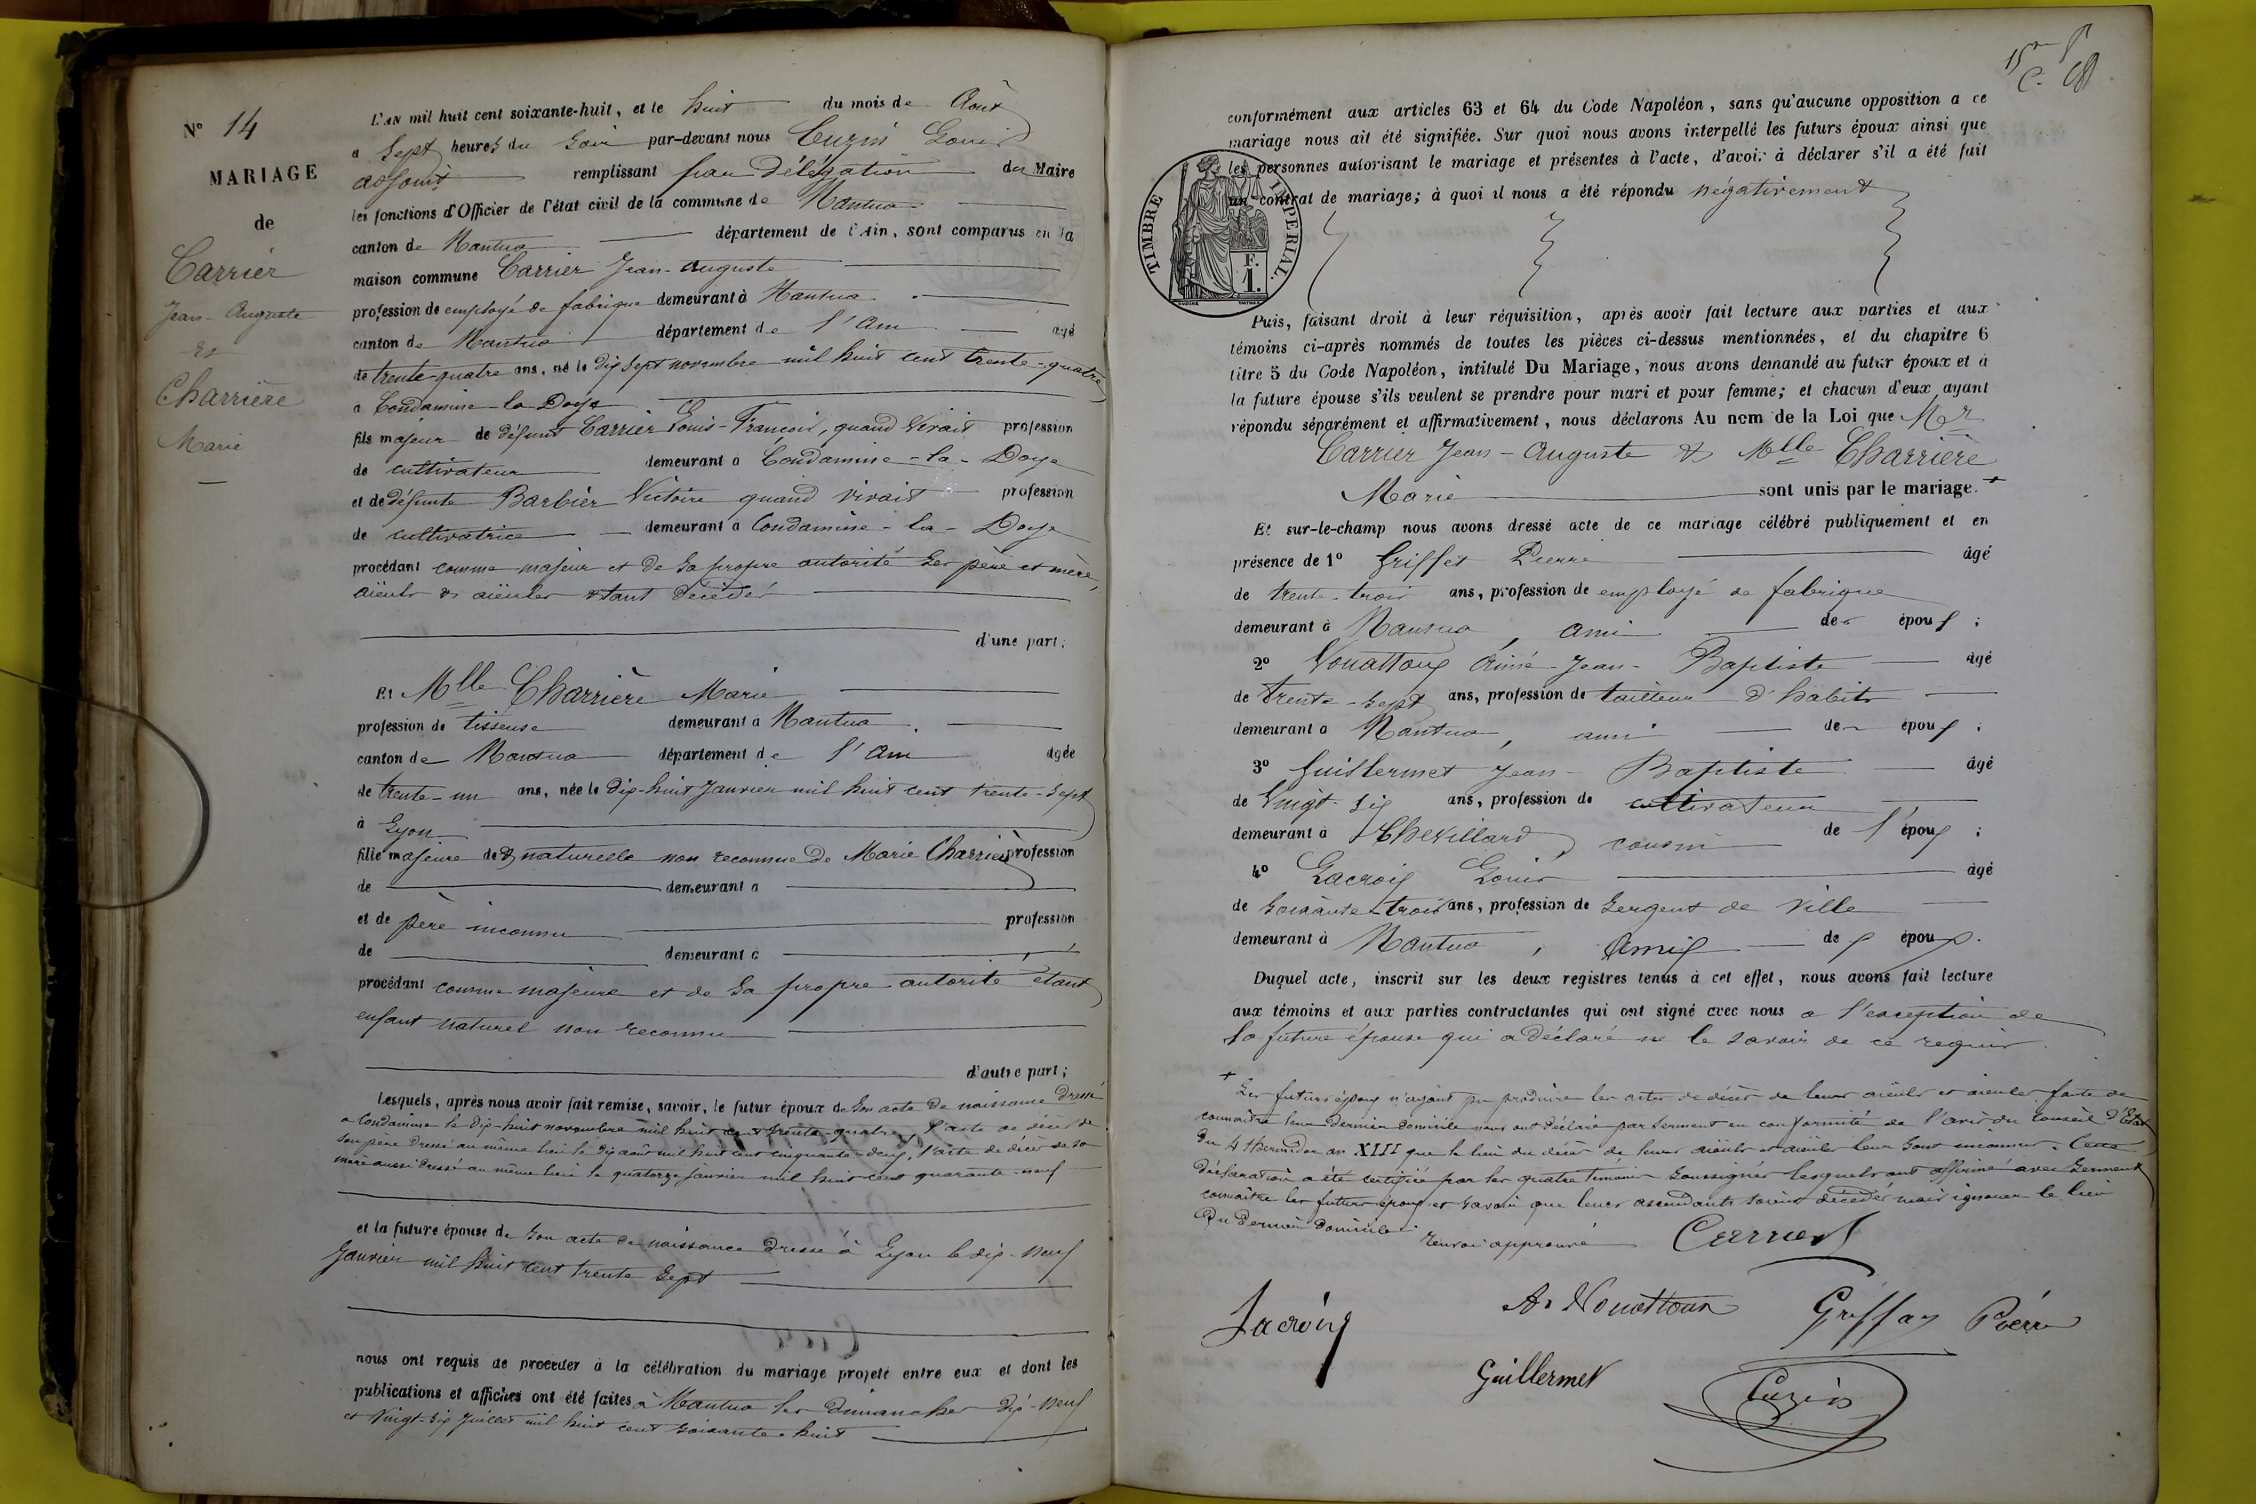 N° 14
MARIAGE
de
Carrier
Jean-Auguste
et
Charrière
Marie
L'AN mil huit cent soixante-huit, et le huit du mois de Août
a Sept heures du Soir par-devant nous Cuzin Louis
adjoint remplissant par délégation du Maire
les fonctions d'Officier de l'état civil de la commune de Nantua
canton de Nantua département de l'Ain, sont comparus en la
maison commune Carrier Jean-Auguste
profession de employé de fabrique demeurant à Nantua
canton de Nantua département de l'Ain agé
de trente-quatre ans, né le dix sept novembre mil huit cent trente-quatre
a Condamine-la-Doye
fils majeur de défunt Carrier Louis-François, quand vivait profession
de cultivateur demeurant a Condamine-la-Doye
et de défunte Barbier Victoire quand vivait profession
de cultivatrice demeurant a Condamine-la-Doye
procédant comme majeur et de sa propre autorité ses père et mère,
aïeuls et aïeules étant décédés
d'une part;
Et Mlle Charrière Marie
profession de tisseuse demeurant a Nantua
canton de Nantua département de l'Ain agée
de trente-un ans, née le dix-huit Janvier mil huit cent trente-sept
à Lyon
fille majeure de & naturelle non reconnue de Marie Charrière profession
de demeurant a
et de père inconnu profession
de demeurant a
procédant comme majeure et de sa propre autorité étant
enfant naturel non reconnu
d'autre part;
Lesquels, après nous avoir fait remise, savoir, le futur époux de son acte de naissance dressé
a Condamine le dix-huit novembre mil huit cent trente-quatre, l'acte de décès de
son père dressé au même lieu le dix août mil huit cent cinquante-deux, l'acte de décès de sa
mère aussi dressé au même lieu le quatorze Janvier mil huit cent quarante-neuf
et la future épouse de son acte de naissance dressé à Lyon le dix-neuf
Janvier mil huit cent trente sept
nous ont requis de proceder à la célébration du mariage projeté entre eux et dont les
publications et affiches ont été faites à Nantua les dimanches dix-neuf
et vingt-six Juillet mil huit cent soixante-huit
conformément aux articles 63 et 64 du Code Napoléon, sans qu'aucune opposition a ce
mariage nous ait été signifiée. Sur quoi nous avons interpellé les futurs époux ainsi que
les personnes autorisant le mariage et présentes à l'acte, d'avoir à déclarer s'il a été fait
un contrat de mariage; à quoi il nous a été répondu négativement
TIMBRE IMPERIAL.
F.
1.
Puis, faisant droit à leur réquisition, après avoir fait lecture aux parties et aux
témoins ci-après nommés de toutes les pièces ci-dessus mentionnées, et du chapitre 6
titre 5 du Code Napoléon, intitulé Du Mariage, nous avons demandé au futur époux et à
la future épouse s'ils veulent se prendre pour mari et pour femme; et chacun d'eux ayant
répondu séparément et affirmativement, nous déclarons Au nom de la Loi que Mr
Carrier Jean-Auguste & Mlle Charrière
Marie sont unis par le mariage. +
Et sur-le-champ nous avons dressé acte de ce mariage célébré publiquement et en
présence de 1° Griffet Pierre âgé
de trente-trois ans, profession de employé de fabrique
demeurant à Nantua, ami des époux;
2° Aimé-Jean-Baptiste âgé
de trente-sept ans, profession de tailleur d'habits
demeurant a Nantua, ami des époux;
3° Guillermet Jean-Baptiste âgé
de vingt-six ans, profession de cultivateur
demeurant à Chevillard, cousin de l'époux;
4° Lacroix Louis âgé
de soixante-trois ans, profession de Sergent de ville
demeurant à Nantua, Ami des époux.
Duquel acte, inscrit sur les deux registres tenus à cet effet, nous avons fait lecture
aux témoins et aux parties contractantes qui ont signé avec nous a l'exception de
la future épouse qui a déclaré ne le savoir de ce requis
+ Les futurs époux n'ayant pu produire les actes de décès de leurs aïeuls et aïeules faute de
connaître leur dernier domicile nous ont déclaré par serment en conformité de l'avis du Conseil d'Etat
du 4 thermidor an XIII que le lieu du décès de leurs aïeuls et aïeules leur sont inconnus. Cette
déclaration a été certifiée par les quatre témoins soussignés lesquels ont affirmé avec serment
connaître les futurs époux et savoir que leurs ascendants soient décédés mais ignorer le lieu
du dernier domicile.
renvoi approuvé Carrier
Lacroix Griffay Pierre
Guillermet Cuzin